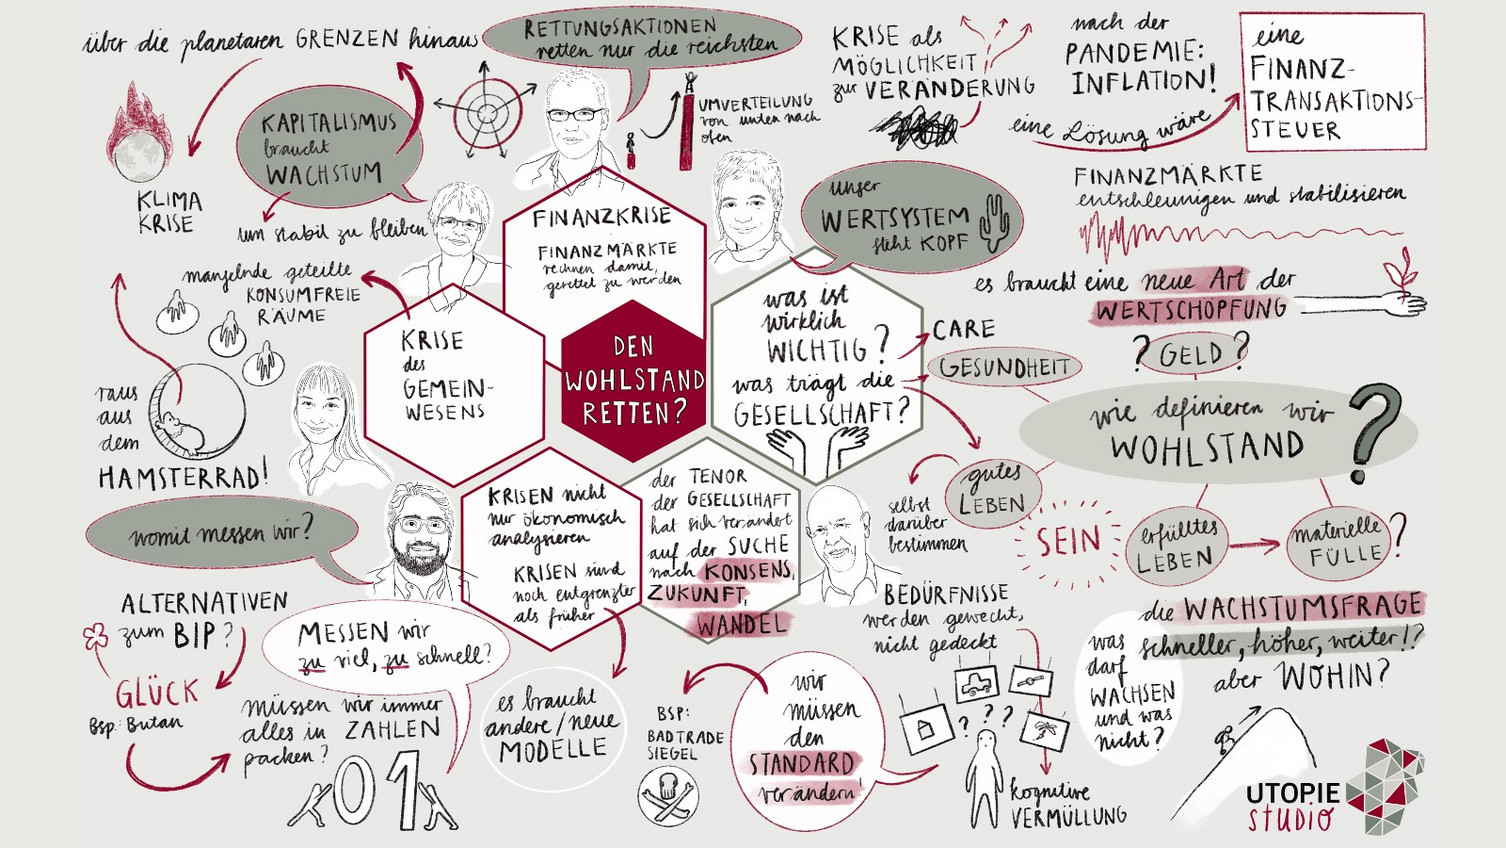 über die planetaren GRENZEN hinaus
RETTUNGSAKTIONEN
retten nur die reichsten
KRISE als
MÖGLICHKEIT
zur VERÄNDERUNG
nach der
PANDEMIE:
INFLATION!
eine Lösung wäre
eine
FINANZ-
TRANSAKTIONS-
STEUER
KAPITALISMUS
braucht
WACHSTUM
um stabil zu bleiben
KLIMA
KRISE
UMVERTEILUNG
von unten nach
oben
unser
WERTSYSTEM
steht KOPF
FINANZMÄRKTE
entschleunigen und stabilisieren
es braucht eine neue Art der
WERTSCHÖPFUNG
FINANZKRISE
FINANZMÄRKTE
rechnen damit,
gerettet zu werden
mangelnde geteilte
KONSUMFREIE
RÄUME
KRISE
des
GEMEIN-
WESENS
DEN
WOHLSTAND
RETTEN?
was ist
wirklich
WICHTIG?
was trägt die
GESELLSCHAFT?
CARE
GESUNDHEIT
? GELD ?
wie definieren wir
WOHLSTAND
?
gutes
LEBEN
selbst
darüber
bestimmen
SEIN
erfülltes
LEBEN
materielle
FÜLLE
?
raus
aus
dem
HAMSTERRAD!
womit messen wir?
KRISEN nicht
nur ökonomisch
analysieren
KRISEN sind
noch entgrenzter
als früher
der TENOR
der GESELLSCHAFT
hat sich verändert
auf der SUCHE
nach KONSENS,
ZUKUNFT,
WANDEL
ALTERNATIVEN
zum BIP?
GLÜCK
Bsp: Butan
MESSEN wir
zu viel, zu schnell?
müssen wir immer
alles in ZAHLEN
packen?
01
es braucht
andere/neue
MODELLE
BSP:
BAD TRADE
SIEGEL
wir
müssen
den
STANDARD
verändern!
BEDÜRFNISSE
werden geweckt,
nicht gedeckt
? ? ? ?
kognitive
VERMÜLLUNG
was
darf
WACHSEN
und was
nicht?
die WACHSTUMSFRAGE
schneller, höher, weiter!?
aber WOHIN?
UTOPIE
STUDIO